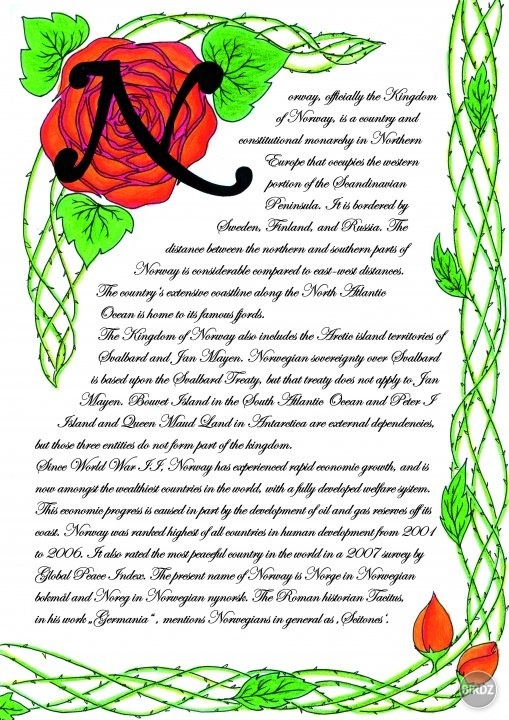 Norway, officially the Kingdom
of Norway, is a country and
constitutional monarchy in Northern
Europe that occupies the western
portion of the Scandinavian
Peninsula. It is bordered by
Sweden, Finland, and Russia. The
distance between the northern and southern parts of
Norway is considerable compared to east-west distances.
The country's extensive coastline along the North Atlantic
Ocean is home to its famous fjords.
The Kingdom of Norway also includes the Arctic island territories of
Svalbard and Jan Mayen. Norwegian sovereignty over Svalbard
is based upon the Svalbard Treaty, but that treaty does not apply to Jan
Mayen. Bouvet Island in the South Atlantic Ocean and Peter I
Island and Queen Maud Land in Antarctica are external dependencies,
but those three entities do not form part of the kingdom.
Since World War II, Norway has experienced rapid economic growth, and is
now amongst the wealthiest countries in the world, with a fully developed welfare system.
This economic progress is caused in part by the development of oil and gas reserves off its
coast. Norway was ranked highest of all countries in human development from 2001
to 2006. It also rated the most peaceful country in the world in a 2007 survey by
Global Peace Index. The present name of Norway is Norge in Norwegian
bokmål and Noreg in Norwegian nynorsk. The Roman historian Tacitus,
in his work „Germania“, mentions Norwegians in general as ‚Scitones‘.
BIRDZ